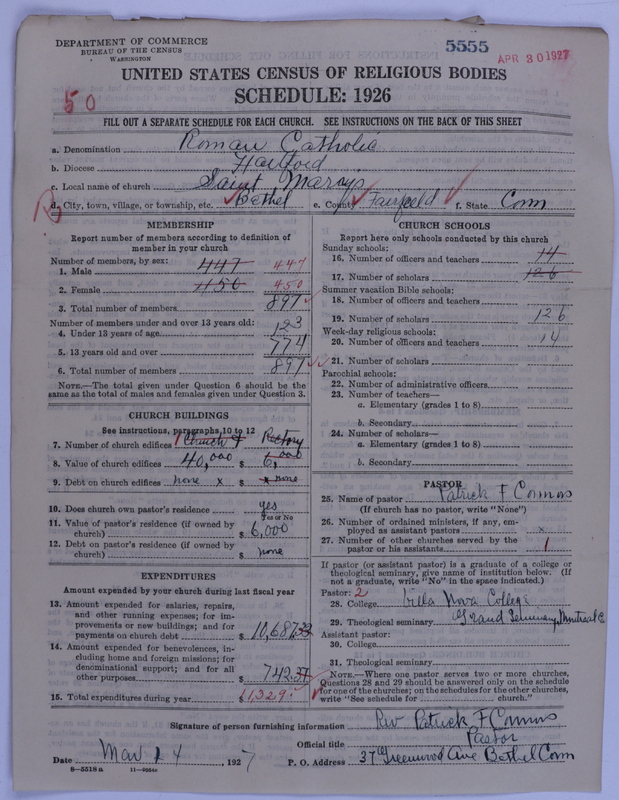 DEPARTMENT OF COMMERCE
BUREAU OF THE CENSUS
WASHINGTON
5555
APR 30 1927
UNITED STATES CENSUS OF RELIGIOUS BODIES
SCHEDULE: 1926
50
FILL OUT A SEPARATE SCHEDULE FOR EACH CHURCH. SEE INSTRUCTIONS ON THE BACK OF THIS SHEET
a. Denomination Roman Catholic
b. Diocese Hartford
c. Local name of church Saint Marys
d. City, town, village, or township, etc. Bethel e. County Fairfield f. State Conn
MEMBERSHIP
Report number of members according to definition of
member in your church
Number of members, by sex:
1. Male 447 447
2. Female 450 450
3. Total number of members 897
Number of members under and over 13 years old:
4. Under 13 years of age 123
5. 13 years old and over 774
6. Total number of members 897
NOTE.—The total given under Question 6 should be the
same as the total of males and females given under Question 3.
CHURCH BUILDINGS
See instructions, paragraphs 10 to 12
7. Number of church edifices 1 Church & Rectory
8. Value of church edifices 40,000 $ 6,000
9. Debt on church edifices none x $ x none
10. Does church own pastor's residence yes
Yes or No
11. Value of pastor's residence (if owned by
church) $ 6,000
12. Debt on pastor's residence (if owned by
church) $ none
EXPENDITURES
Amount expended by your church during last fiscal year
13. Amount expended for salaries, repairs,
and other running expenses; for im-
provements or new buildings; and for
payments on church debt $ 10,687.32
14. Amount expended for benevolences, in-
cluding home and foreign missions; for
denominational support; and for all
other purposes $ 742.37
15. Total expenditures during year $ 11,329.
CHURCH SCHOOLS
Report here only schools conducted by this church
Sunday schools:
16. Number of officers and teachers 14
17. Number of scholars 126
Summer vacation Bible schools:
18. Number of officers and teachers
19. Number of scholars 126
Week-day religious schools:
20. Number of officers and teachers 14
21. Number of scholars
Parochial schools:
22. Number of administrative officers
23. Number of teachers—
a. Elementary (grades 1 to 8)
b. Secondary
24. Number of scholars—
a. Elementary (grades 1 to 8)
b. Secondary
PASTOR
25. Name of pastor Patrick F Connors
(If church has no pastor, write "None")
26. Number of ordained ministers, if any, em-
ployed as assistant pastors x
27. Number of other churches served by the
pastor or his assistants 1
If pastor (or assistant pastor) is a graduate of a college or
theological seminary, give name of institution below. (If
not a graduate, write "No" in the space indicated.)
Pastor: 2
28. College Villa Nova College
29. Theological seminary Grand Seminary, Montreal C
Assistant pastor:
30. College
31. Theological seminary
NOTE.—Where one pastor serves two or more churches,
Questions 28 and 29 should be answered only on the schedule
for one of the churches; on the schedules for the other churches,
write "See schedule for church."
Signature of person furnishing information Rev Patrick F Connors
Official title Pastor
Date Mar 24 1927 P. O. Address 37 Greenwood Ave Bethel Conn
8—5518 a